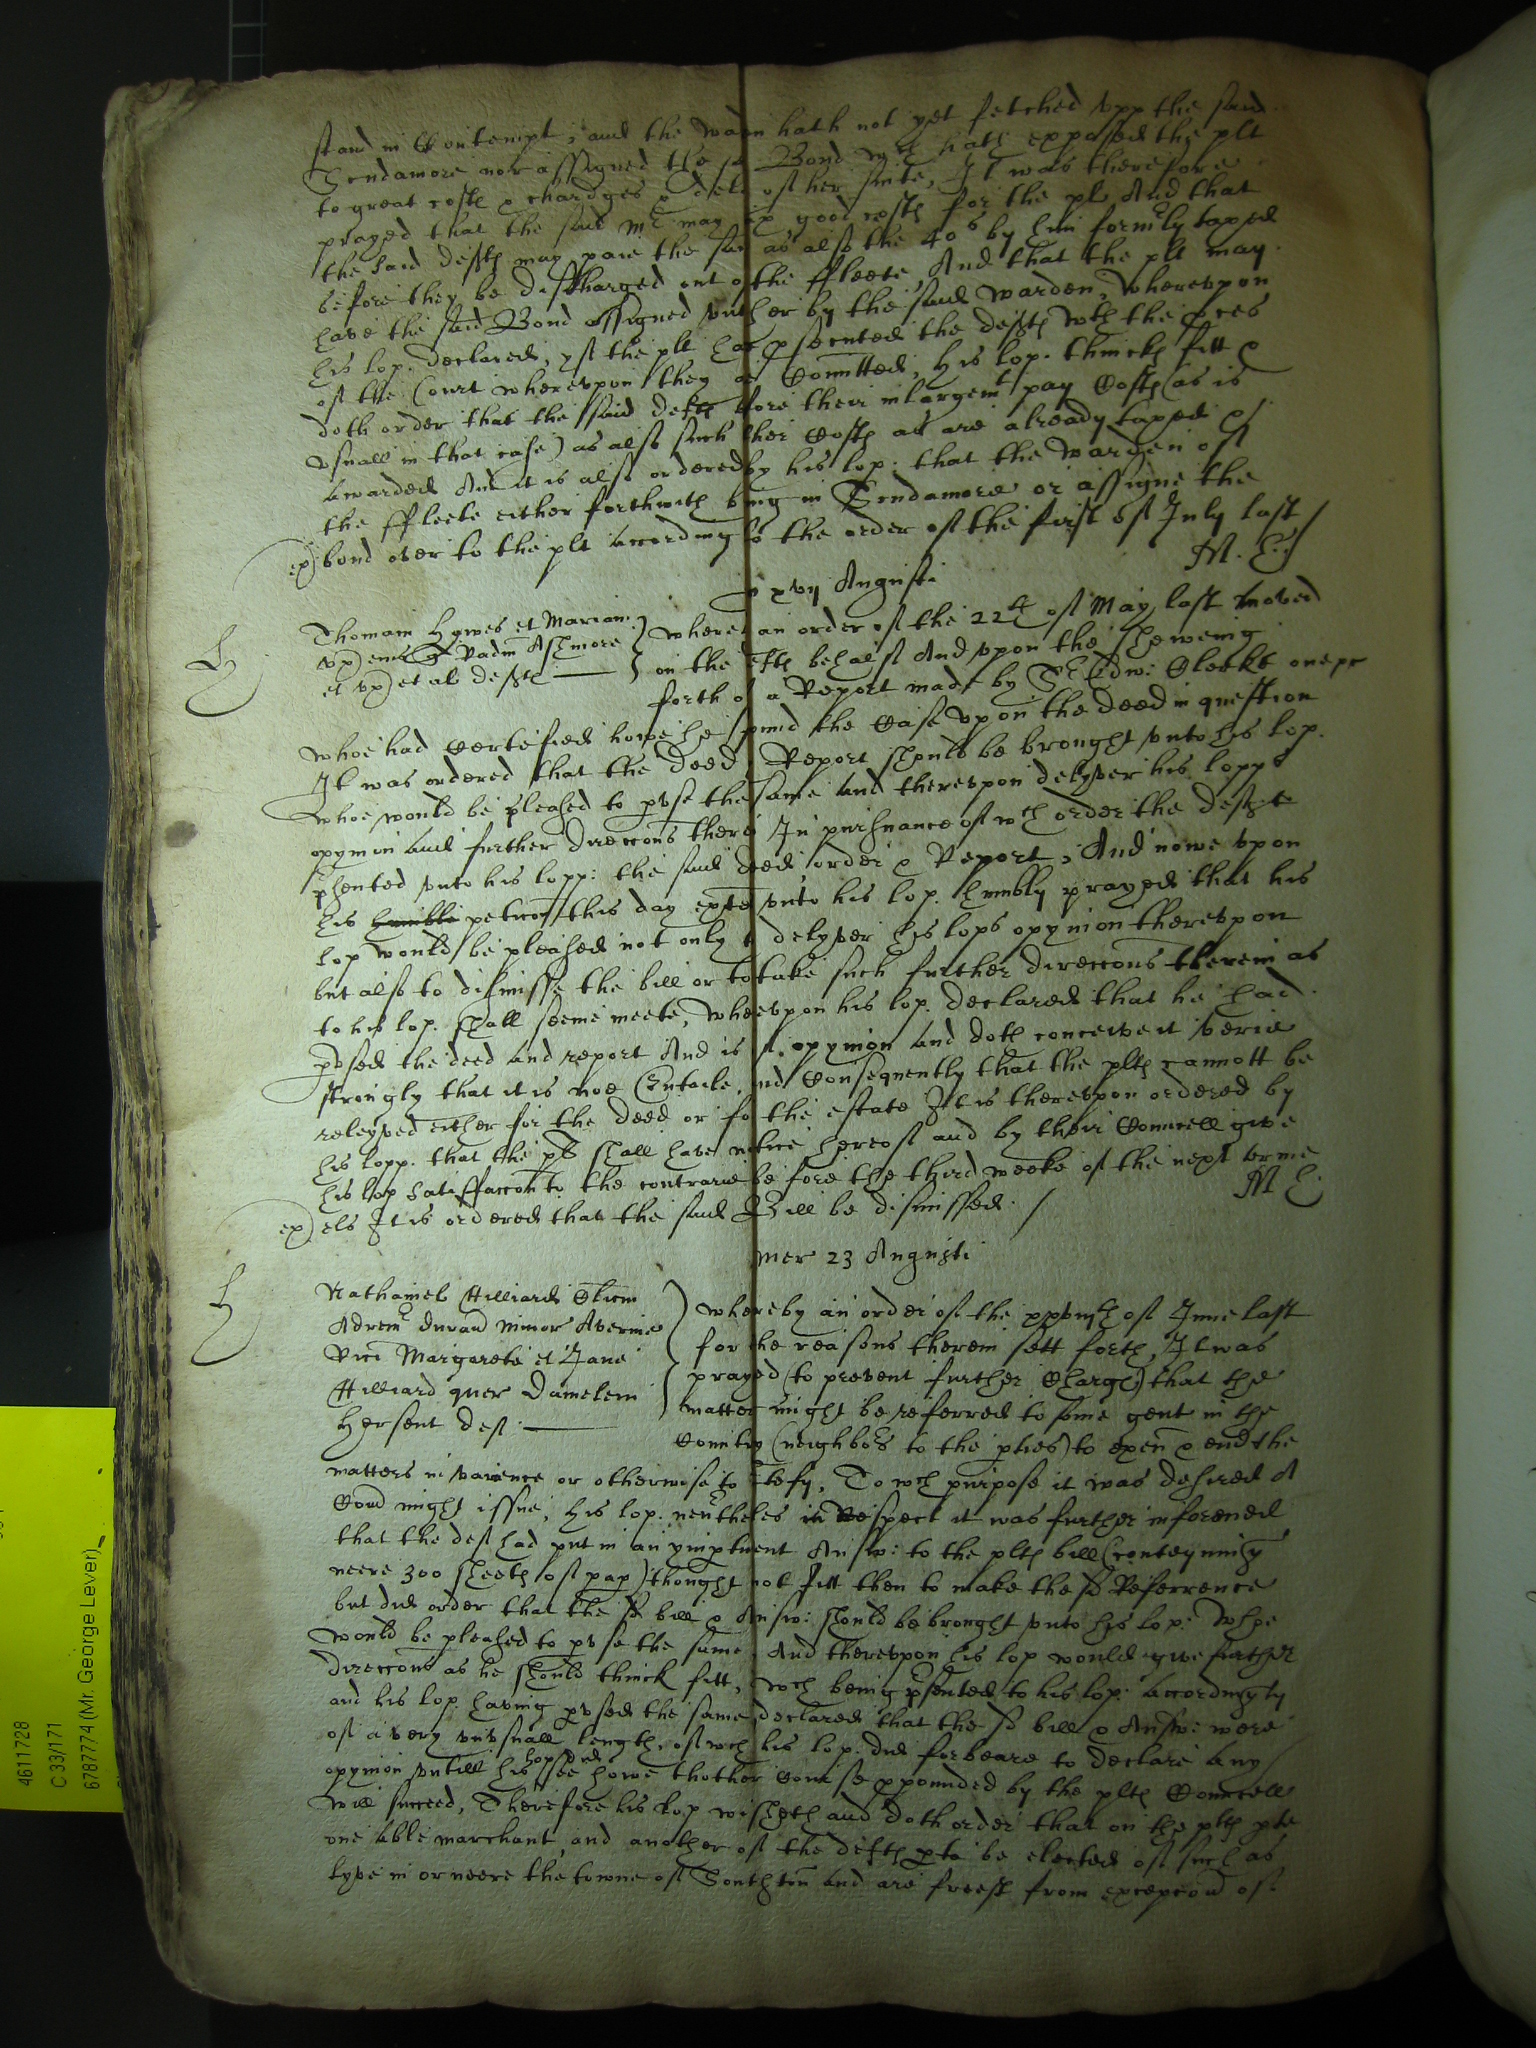 stand in Contempt, and the warden hath not yet fetched upp the said
Scudamore nor assigned the sd Bond wch hath exposed the plt
to great costs & chardges & delay of her suite, It was therefore
prayed that the said Mr may good costs for the plt And that
the said defts may paie the same as also the 40s by him formrly taxed
before they be discharged out of the ffleete, And that the plt may
have the said Bond assigned unto her by the said warden, Whereupon
his lop. declared, yf the plt had psecuted the defts wth the pces
of the Court whereupon they are Comitted, his lop. thincks fitt &
doth order that the said defts before their inlargemt pay Costs (as is
usuall in that case) as also such other Costs as are already taxed &
awarded And it is also ordered by his lop. that the warden of
the ffleete either forthwith bring in Scudamore or assigne the
ex) bond over to the plt according to the order of the first of July last
M. C.
xvij Augusti
Thomam Hynes et Marian
ux) eius Radm Ashmore
et ux) et al defts
Whereas an order of the 22th of May last moved
on the defts behalf And upon the shewing
forth of a Report made by Sr Edw: Clerke one &c
whoe had Certefied howe he found the Case upon the deed in question
It was ordered that the deed & Report should be brought unto his lop.
whoe would be pleased to pvse the same and thereupon delyver his lopps
opynion and further direccons therein In pursuance of wch order the deft
psented unto his lopp: the said deed order & Report, And nowe upon
his humble peticon this day unto his lop. humbly prayed that his
lop would be pleased not only to delyver his lops opynion thereupon
but also to dismisse the bill or to take such further direccons therein as
to his lop. shall seeme meete, Whereupon his lop. declared that he had
pvsed the deed and report And is of opynion and doth conceive it verie
strongly that it is noe and Consequently that the plts cannott be
releyved either for the deed or for the estate It is thereupon ordered by
his lopp. that the plts shall have notice hereof and by their Councell give
his lop satisfaccon to the contrarie before the third weeke of the next terme
ex) els It is ordered that the said Bill be dismissed.
M C.
Mer 23 Augusti
Nathaniel Hilliard
minor
Margarete et Jane
Hilliard quer Danielem
Hersent def.
Whereby an order of the xxviijth of June last
for the reasons therein sett forth, It was
prayed (to prevent further Charge) that the
matter might be referred to some gent in the
Country (neighbors to the pties) to exen & end the
matters in varience or otherwise to Ctefy, To wch purpose it was desired A
Com̃ might issue, his lop. neutheles in Respect it was further informed
that the def had put in an ymptinent Answ: to the plts bill (conteyning
neere 300 sheets of pap) thought not fitt then to make the sd Referrence
but did order that the sd bill & Answ: should be brought unto his lop: Whoe
would be pleased to pvse the same, And thereupon his lop would give further
direccons as he should thinck fitt, Wch being psented to his lop: accordingly
and his lop. having pvsed the same declared that the sd bill & Answ: were
of a very unusuall length, of wch his lop. did forbeare to declare any
opynion untill his lopp did see howe thother Course ppounded by the plts Councell
will succeed, Therefore his lop wisheth and doth order that on the plts pte
one able marchant, and another of the defts pte be elected of such as
lyve in or neere the towne of Southton and are freest from excepcon of
4611728
C 33/171
6787774 (Mr. George Lever)